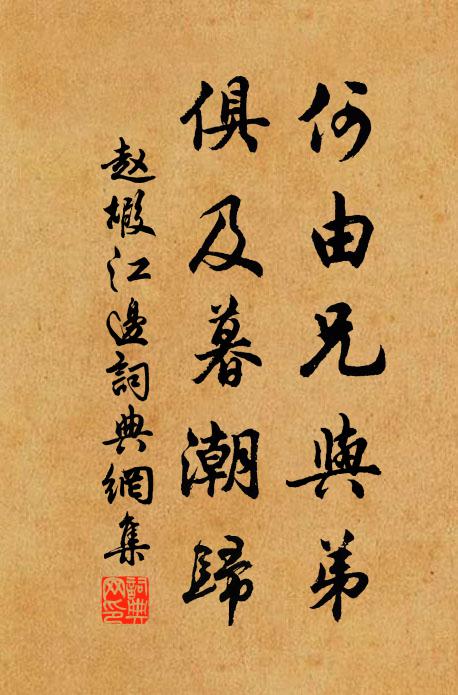 何由兄與弟
俱及暮潮歸
赵嘏江邊詞典網集
詞典網印